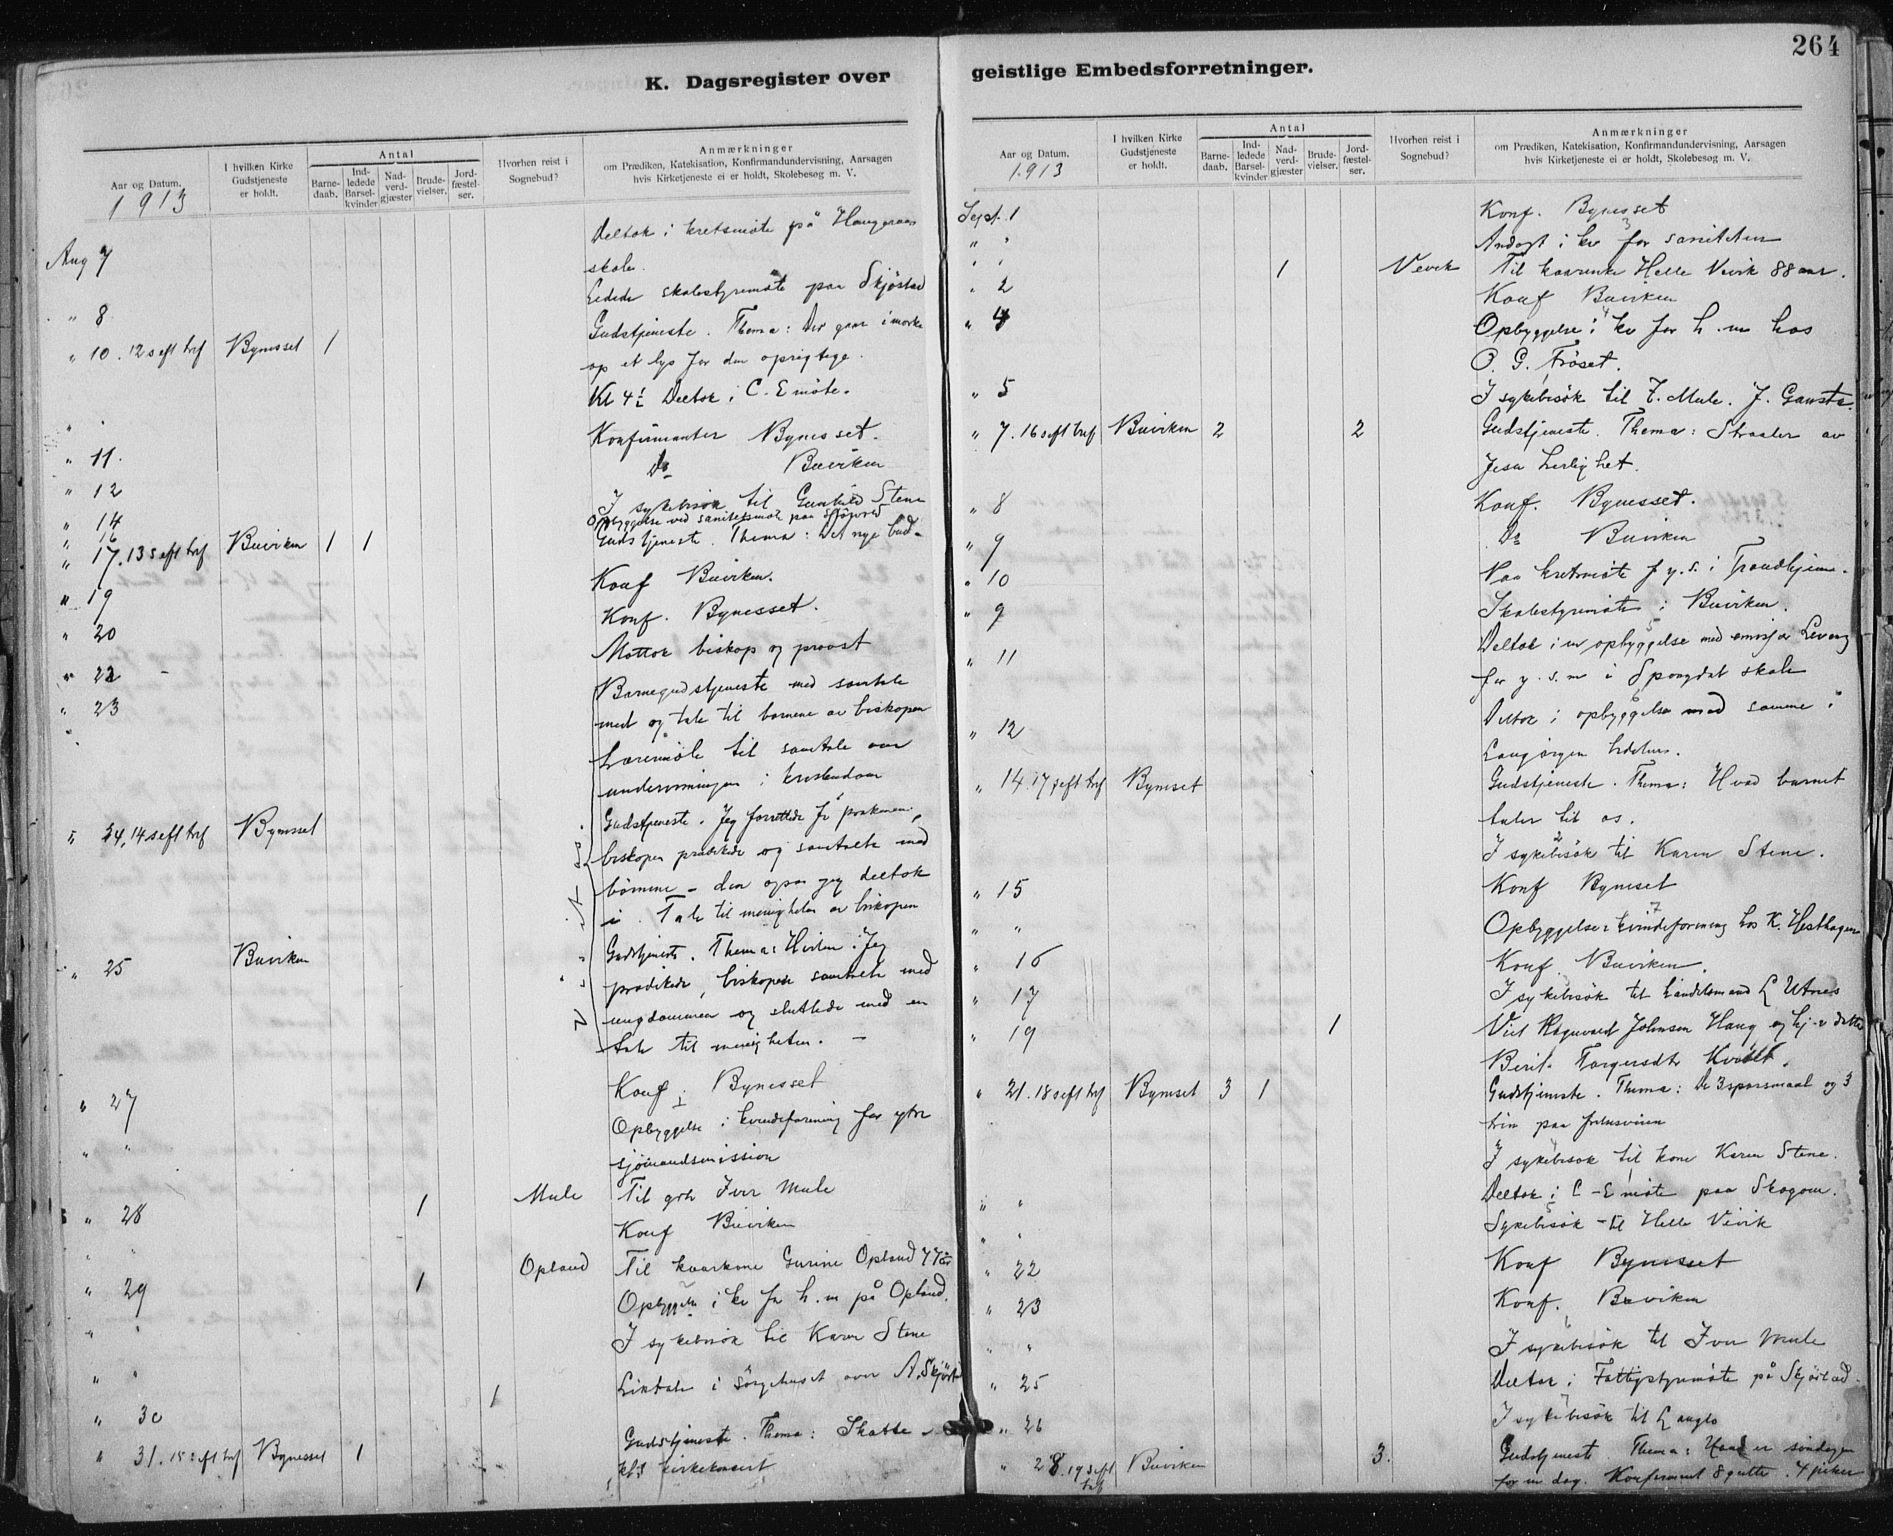 264
K. Dagsregister over
geistlige Embedsforretninger.
Aar og Datum.
I hvilken Kirke Gudstjeneste er holdt.
Antal
Barnedaab.
Indledede Barselkvinder
Nadverdgjæster
Brudevielser.
Jordfæstelser.
Hvorhen reist i Sognebud?
Anmærkninger
om Prædiken, Katekisation, Konfirmandundervisning, Aarsagen
hvis Kirketjeneste ei er holdt, Skolebesøg m. V.
1913
Aug 7 Deltok i kretsmöte på
skole.
" 8 Ledede skolestyremöte paa Skjöstad
" 10. 12 s eft tref Bynesset 1 Gudstjeneste. Thema: Der gaar i mörke
op et lys for den oprigtige.
" Kl 4½ Deltok i C. E möte.
" 11. Konfirmanter Bynesset.
" 12 Do Buviken
" 14 I sykebesök til Gunhild Stene
" 16 Opbyggelse ved sanitetsmöte paa
" 17. 13 s eft tref Buviken 1 1 Gudstjeneste. Thema: Det nye bud.
" 19 Konf Buviken.
" 20 Konf. Bynesset.
" 22 Mottok biskop og proost
" 23 Barnegudstjeneste med samtale
med og tale til barnene av biskopen
" Læremöte til samtale om
undervisningen i kristendom
" 24, 14 s eft tref Bynesset Gudstjeneste. Jeg forrettede
biskopen prædikede og samtalte med
börnene - den ogsaa jeg deltok
i. Tale til menigheten av biskopen
" 25 Buviken Gudstjeneste. Thema: Hirten. Jeg
prædikede, biskopen samtalte med
ungdommen og sluttede med en
tale til menigheten. -
" 27 Konf i Bynesset
" " Opbyggelse i kvindeforening for ytre
sjömandsmission
" 28 1 Mule Til Iver Mule
" " Konf Buviken
" 29 1 Opland Til Gurine Opland 77 år
" " Opbyggelse i kv for h.m på Opland.
" " I sykebesök til Karen Stene
" 30 1 Liktale i sörgehuset over A. Skjöst
" 31. 15 s eft tref Bynesset 1 Gudstjeneste. Thema: Skatte
kirkekonsert
Aar og Datum.
I hvilken Kirke Gudstjeneste er holdt.
Antal
Barnedaab.
Indledede Barselkvinder
Nadverdgjæster
Brudevielser.
Jordfæstelser.
Hvorhen reist i Sognebud?
Anmærkninger
om Prædiken, Katekisation, Konfirmandundervisning, Aarsagen
hvis Kirketjeneste ei er holdt, Skolebesøg m. V.
1913
Sept. 1 Konf. Bynesset
" " Andagt i kv for saniteten
" " 1 Vevik Til Helle Vevik 88 aar.
" 2 Konf Buviken
" 4 Opbyggelse i kv for h.m hos
O. G. Fröset.
" 5 I sykebesök til I. Mule. J. Gausta.
" 7. 16 s eft tref Buviken 2 2 Gudstjeneste. Thema: Straaler av
Jesu herlighet.
" 8 Konf. Bynesset.
" 9 Do Buviken
" 10 Paa kretsmöte f y.s. i Trondhjem.
" 9 Skolestyremöte i Buviken.
" 11 Deltok i en opbyggelse med emissær Levang
for y.s.m i Spongdal skole
" 12 Deltok i opbyggelse med samme i
Langörgen bedehus.
" 14. 17 s eft tref Bynesset Gudstjeneste. Thema: Hvad barnet
taler til os.
I sykebesök til Karen Stene.
" 15 Konf Bynesset
" " Opbyggelse i kvindeforening hos K. Hesthagen
" 16 Konf Buviken.
" 17 I sykebesök til handelsmand L Utnes
" 19 1 Viet Ragnvald Johnsen Haug og
Berit Torgersdtr
" 21. 18 s eft tref Bynesset 3 1 Gudstjeneste. Thema: De 3 spörsmaal og 3
trin paa frelsesveien
I sykebesök til kone Karen Stene.
" " Deltok i C - E möte paa Skogom.
" " Sykebesök til Helle Vevik
" 22 Konf Bynesset
" 23 Konf. Buviken
" " I sykebesök til Iver Mule
" 25 Deltok i Fattigstyremöte på Skjöstad.
" 26 I sykebesök til Langlo
" 28. 19 s eft tref Buviken 3. Gudstjeneste. Thema: Hvad er söndagen
for en dag. Konfirmert 8 gutter. 4 piker